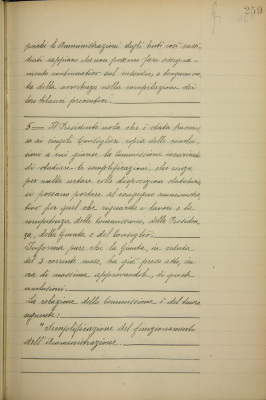 259
perchè le Amministrazioni degli Enti così sussi-
diati sappiano che non possono fare assegna-
mento continuativo sul sussidio, e tengano no-
ta della avvertenza nella compilazione dei
loro bilanci preventivi.
5 — Il Presidente nota che è stata trasmes-
sa ai singoli Consiglieri copia delle conclu-
sioni a cui giunse la Commissione incaricata
di studiare le semplificazioni, che senza
per nulla urtare colle disposizioni statutarie
si possono portare al congegno amministra-
tivo per quel che riguarda il lavoro e la
competenza delle Commissioni, della Presiden-
za, della Giunta e del Consiglio.
Informa pure che la Giunta, in seduta
del 5 corrente mese, ha già preso atto, in
via di massima approvandole, di queste
conclusioni.
La relazione della Commissione è del tenore
seguente:
"Semplificazione del funzionamento
dell'Amministrazione.